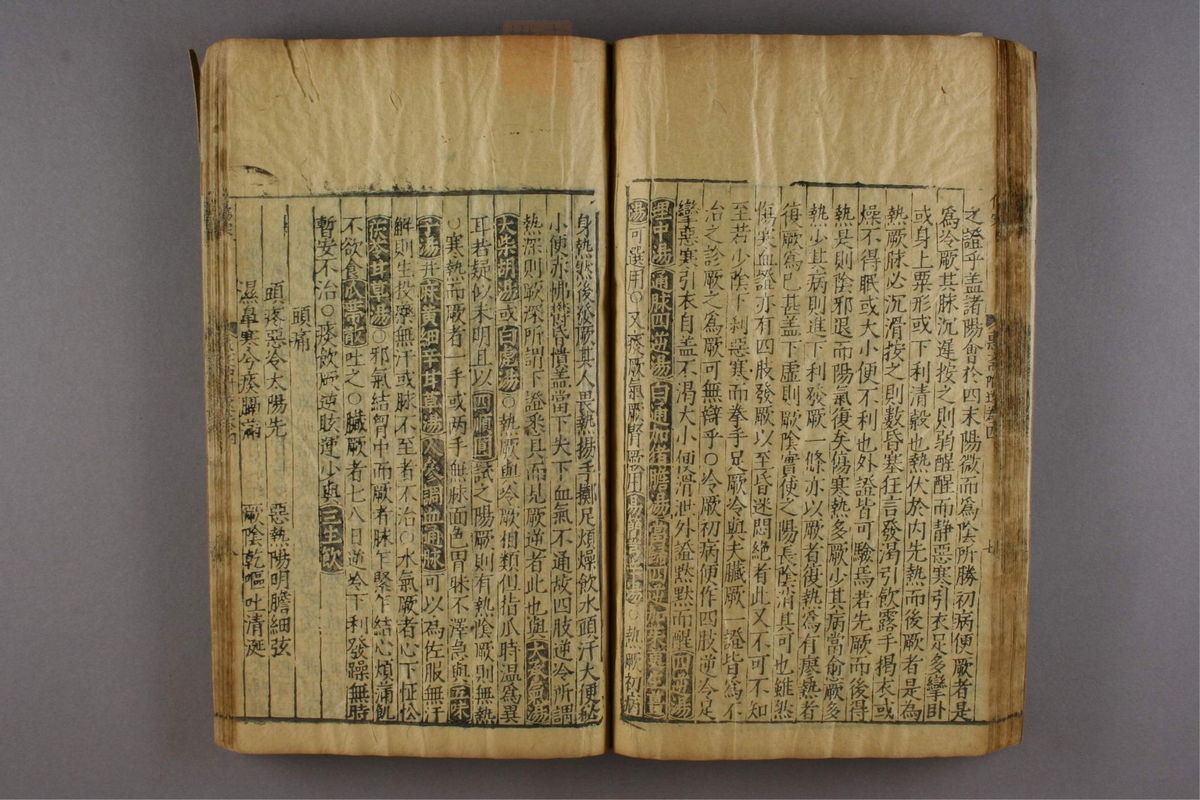 之證乎盖諸陽會於四末陽微而爲陰所勝初病便厥者是
爲冷厥其脉沉遲按之則弱醒醒而静惡寒引衣足多攣卧
或身上粟形或下利清穀也熱伏於内先熱而後厥者是為
熱厥脉必沉滑按之則數昏塞狂言發渴引飲露手掲衣或
燥不得眠或大小便不利也外證皆可驗焉若先厥而後得
熱是則陰邪退而陽氣復矣傷寒熱多厥少其病當愈厥多
熱少其病則進下利發厥一條亦以厥者復熱爲有廖熱者
復厥爲已甚盖下虚則厥陰實使之陽長陰消其可也雖然
傷寒血證亦有四肢發厥以至昏迷悶絶者此又不可不知
至若少陰下利惡寒而拳手足厥冷與夫臓厥一證皆爲不
治之診厥之爲厥可無辯乎○冷厥初病便作四肢逆冷足
攣惡寒引衣自盖不渴大小便滑泄外證黙黙而醒四逆湯
理中湯通脉四逆湯白通加猪膽湯當歸四逆加朱萸生薑
湯可選用○又痰厥氣厥腎厥用○熱厥初病
身熱然後發厥其人畏熱揚手擲足煩燥飲水頭汗大便秘
小便赤怫欝昏憒盖當下失下血氣不通故四肢逆冷所謂
熱深則厥深所謂下證悉具而見厥逆者此也與大承氣湯
大柴胡湯或白虎湯○熱厥與冷厥相類但指爪時温爲異
耳若疑似未明且以四順圓試之陽厥則有熱陰厥則無熱
○寒熱而厥者一手或两手無脉面色胃脉不澤急與五味
子湯并麻黄細辛甘草湯人參調血通脉可以為佐服無汗
解則生投藥無汗或脉不至者不治○水氣厥者心下怔忪
茯苓甘草湯○邪氣結胷中而厥者脉乍緊乍結心煩滿飢
不欲食瓜蒂散吐之○臓厥者七八日逆冷下利發躁無時
暫安不治○痰飲厥逆咳逆少與三生飲
頭痛
頭疼惡冷太陽先 惡熱陽明膽細弦
濕鼻寒令疼膈滿 厥陰乾嘔吐清涎